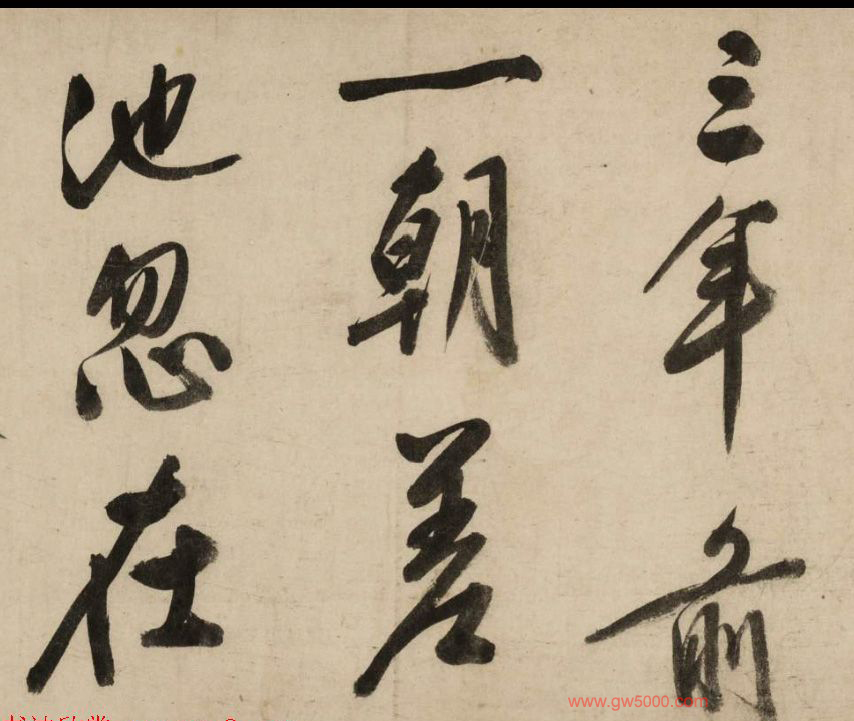 三年前
一朝差
池忽在
www.gw5000.com